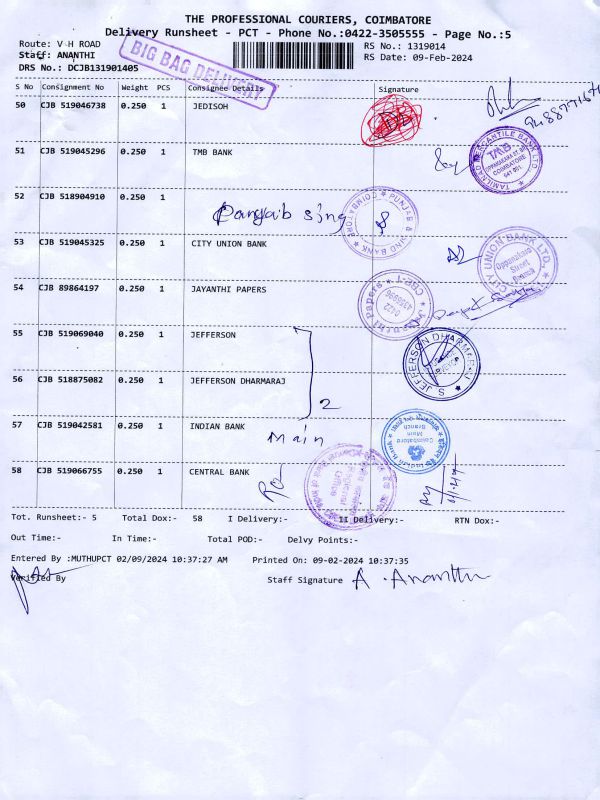 THE PROFESSIONAL COURIERS, COIMBATORE
Delivery Runsheet - PCT - Phone No.:0422-3505555 - Page No.:5
Route: V H ROAD
RS No.: 1319014
Staff: ANANTHI
RS Date: 09-Feb-2024
DRS No.: DCJB131901405
BIG BAG DELIVERY
S No Consignment No Weight PCS Consignee Details Signature
50 CJB 519046738 0.250 1 JEDISOH
51 CJB 519045296 0.250 1 TMB BANK
TAMILNAD MERCANTILE BANK LTD
TMB
COIMBATORE
641 001
52 CJB 518904910 0.250 1
PUNJAB & SIND BANK COIMBATORE
53 CJB 519045325 0.250 1 CITY UNION BANK
CITY UNION BANK LTD.
Oppanakara
Street
Branch
54 CJB 89864197 0.250 1 JAYANTHI PAPERS
Jayanthi Papers
0422
55 CJB 519069040 0.250 1 JEFFERSON
S JEFFERSON DHARMARAJ
56 CJB 518875082 0.250 1 JEFFERSON DHARMARAJ
2
57 CJB 519042581 0.250 1 INDIAN BANK
Main
Indian Bank
Coimbatore
Main
Branch
58 CJB 519066755 0.250 1 CENTRAL BANK
Tot. Runsheet:- 5 Total Dox:- 58 I Delivery:- II Delivery:- RTN Dox:-
Out Time:- In Time:- Total POD:- Delvy Points:-
Entered By :MUTHUPCT 02/09/2024 10:37:27 AM Printed On: 09-02-2024 10:37:35
Verified By
Staff Signature A. Ananthi